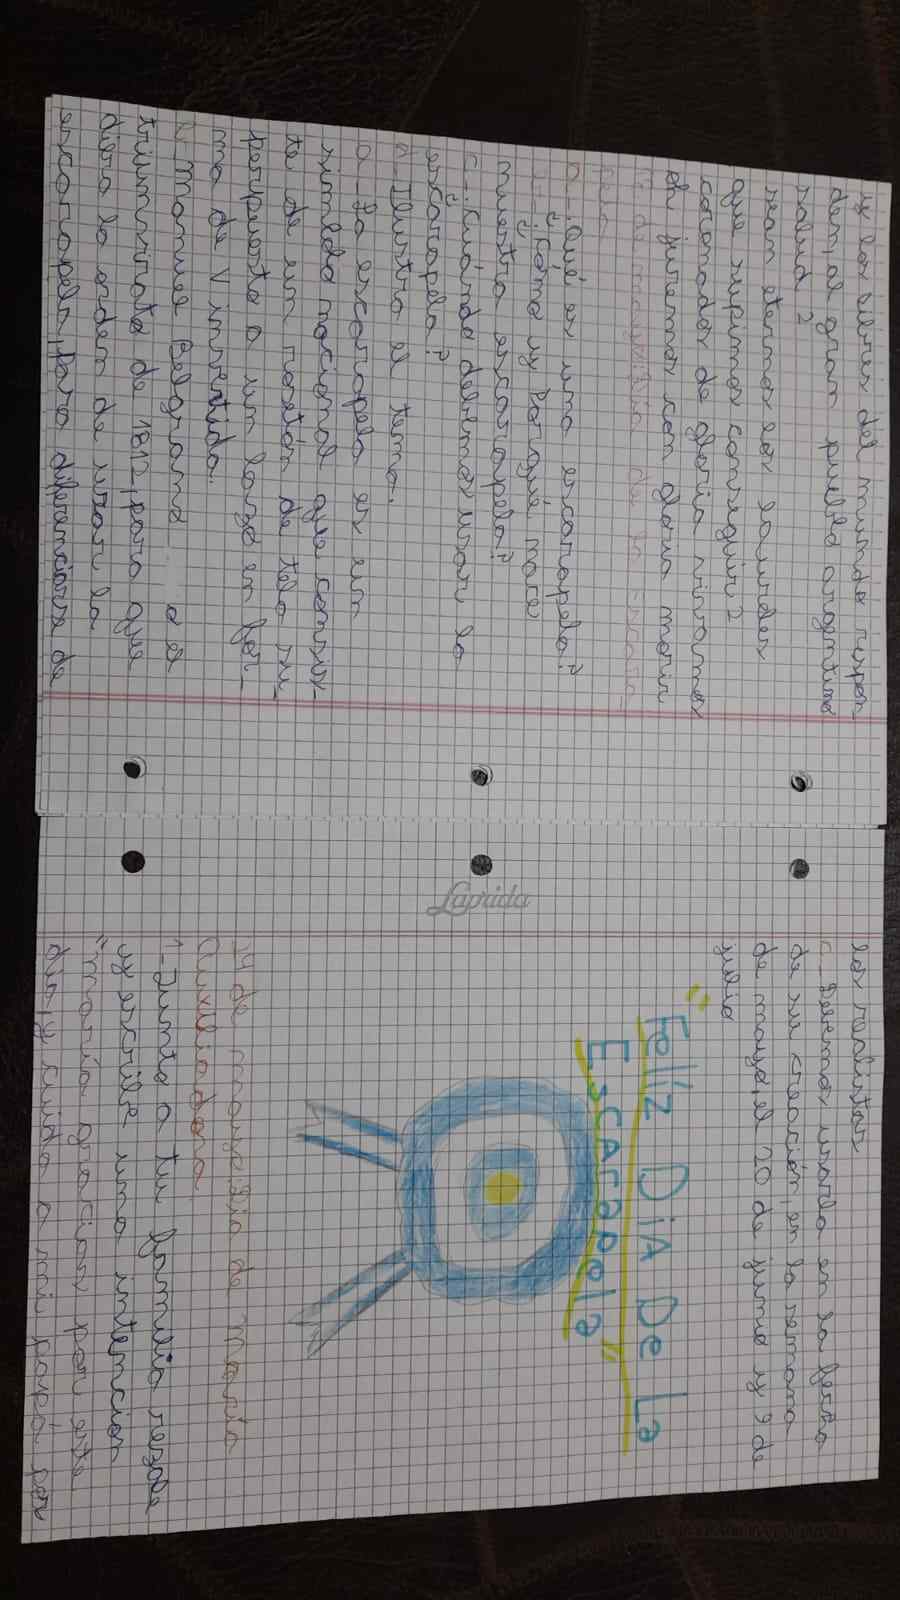 y los libres del mundo respon-
den, al gran pueblo argentino
salud 2
sean eternos los laureles
que supimos conseguir 2
coronados de gloria vivamos
oh juremos con gloria morir
18 de mayo: Día de la Escara_
pela
a_ ¿Qué es una escarapela?
b_ ¿Cómo y porqué nace
nuestra escarapela?
c_ ¿Cuándo debemos usar la
escarapela?
d_ Ilustra el tema.
a_ La escarapela es un
símbolo nacional que consis_
te de un rosetón de tela su_
perpuesto a un lazo en for_
ma de V invertida.
b_ Manuel Belgrano a el
triunvirato de 1812, para que
diera la orden de usar la
escarapela, para diferenciarse de
los realistas
c_ Debemos usarla en la fecha
de su creación, en la semana
de mayo, el 20 de junio y 9 de
julio
"Felíz DíA De La
EscArapela"
Laprida
24 de mayo: Día de María
Auxiliadora
1_ Junto a tu familia rezale
y escribe una intención
"María gracias por este
día y cuida a mi papá por